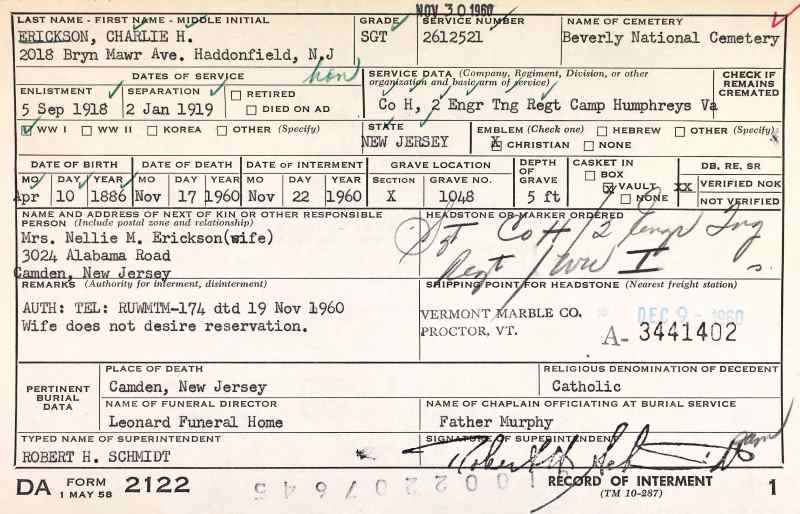 NOV 30 1960
LAST NAME - FIRST NAME - MIDDLE INITIAL
ERICKSON, CHARLIE H.
2018 Bryn Mawr Ave. Haddonfield, N.J
GRADE
SGT
SERVICE NUMBER
2612521
NAME OF CEMETERY
Beverly National Cemetery
DATES OF SERVICE
hon
ENLISTMENT
5 Sep 1918
SEPARATION
2 Jan 1919
RETIRED
DIED ON AD
SERVICE DATA (Company, Regiment, Division, or other
organization and basic arm of service)
Co H, 2 Engr Tng Regt Camp Humphreys Va
CHECK IF
REMAINS
CREMATED
WW I WW II KOREA OTHER (Specify)
STATE
NEW JERSEY
EMBLEM (Check one) HEBREW OTHER (Specify)
X CHRISTIAN NONE
DATE OF BIRTH
MO DAY YEAR
Apr 10 1886
DATE OF DEATH
MO DAY YEAR
Nov 17 1960
DATE OF INTERMENT
MO DAY YEAR
Nov 22 1960
GRAVE LOCATION
SECTION GRAVE NO.
X 1048
DEPTH
OF
GRAVE
5 ft
CASKET IN
BOX
X VAULT
NONE
DB, RE, SR
XX VERIFIED NOK
NOT VERIFIED
NAME AND ADDRESS OF NEXT OF KIN OR OTHER RESPONSIBLE
PERSON (Include postal zone and relationship)
Mrs. Nellie M. Erickson(wife)
3024 Alabama Road
Camden, New Jersey
HEADSTONE OR MARKER ORDERED
Sgt Co H / 2 Engr Tng
Regt / WW I
s.
REMARKS (Authority for interment, disinterment)
AUTH: TEL: RUWMTM-174 dtd 19 Nov 1960
Wife does not desire reservation.
SHIPPING POINT FOR HEADSTONE (Nearest freight station)
VERMONT MARBLE CO.
PROCTOR, VT.
DEC 9 - 1960
A- 3441402
PERTINENT
BURIAL
DATA
PLACE OF DEATH
Camden, New Jersey
RELIGIOUS DENOMINATION OF DECEDENT
Catholic
NAME OF FUNERAL DIRECTOR
Leonard Funeral Home
NAME OF CHAPLAIN OFFICIATING AT BURIAL SERVICE
Father Murphy
TYPED NAME OF SUPERINTENDENT
ROBERT H. SCHMIDT
SIGNATURE OF SUPERINTENDENT
Robert H Schmidt
DA FORM 2122
1 MAY 58
RECORD OF INTERMENT
(TM 10-287)
1